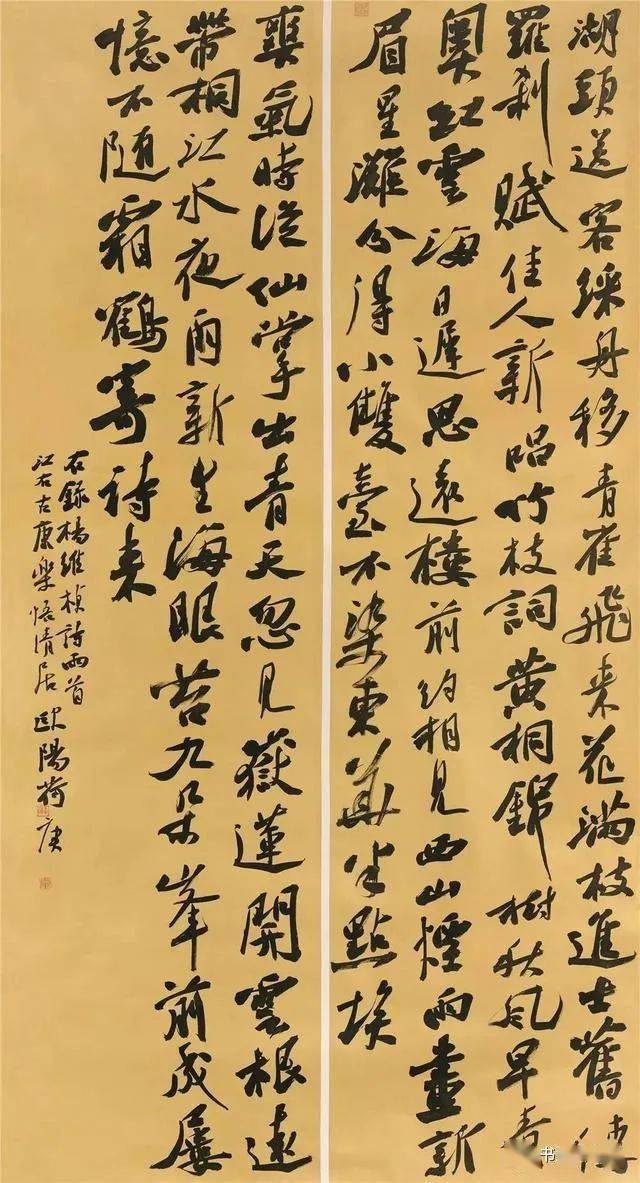 湖頭送客綵舟移青雀飛來花滿枝進士舊傳
羅剎賦佳人新唱竹枝詞黃桐錦樹秋風早青
奧紅雲海日遲思遠樓前約相見西山煙雨畫新
眉星灘分得小雙臺不染東華半點埃
爽氣時從仙掌出青天忽見嶽蓮開雲根遠
帶桐江水夜雨新生海眼苔九朵峰前成屢
憶不隨霜鶴寄詩來
石錄楊維楨詩兩首
江右古康樂悟清居歐陽荷庚
书